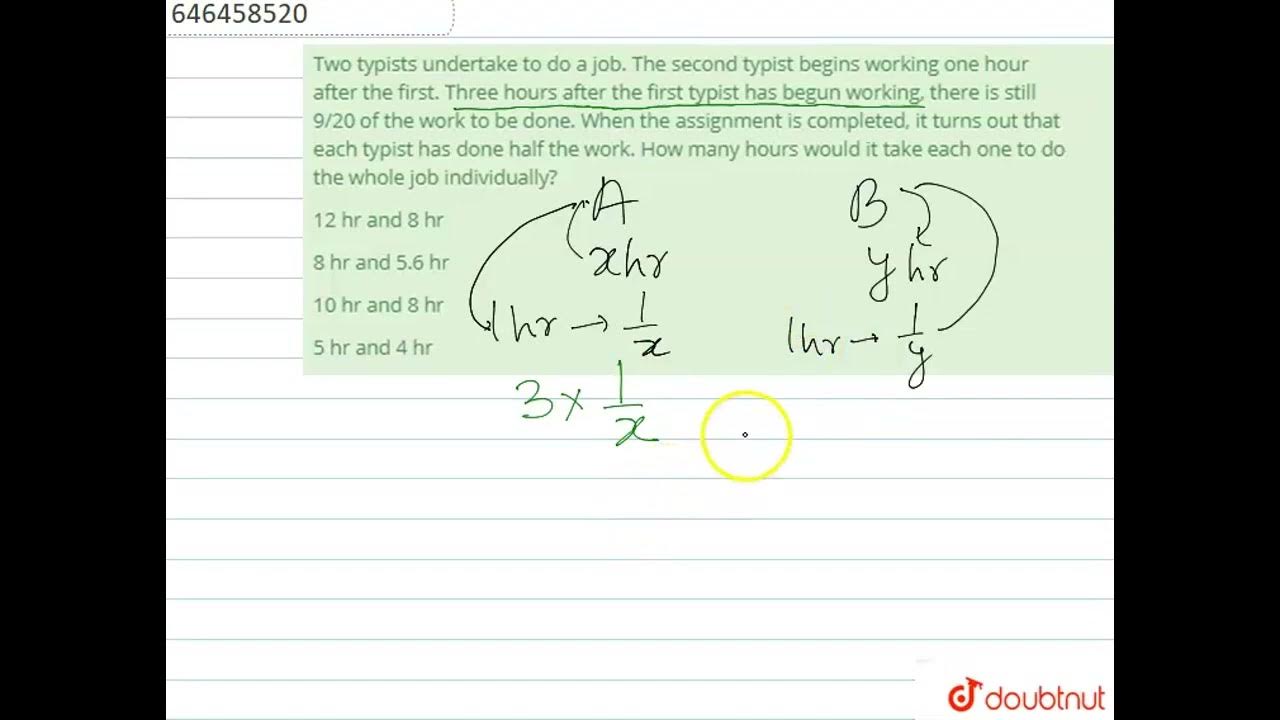 646458520
Two typists undertake to do a job. The second typist begins working one hour
after the first. Three hours after the first typist has begun working, there is still
9/20 of the work to be done. When the assignment is completed, it turns out that
each typist has done half the work. How many hours would it take each one to do
the whole job individually?
12 hr and 8 hr
8 hr and 5.6 hr
10 hr and 8 hr
5 hr and 4 hr
A
B
x hr
y hr
1 hr → 1/x
1hr → 1/y
3 × 1/x
doubtnut